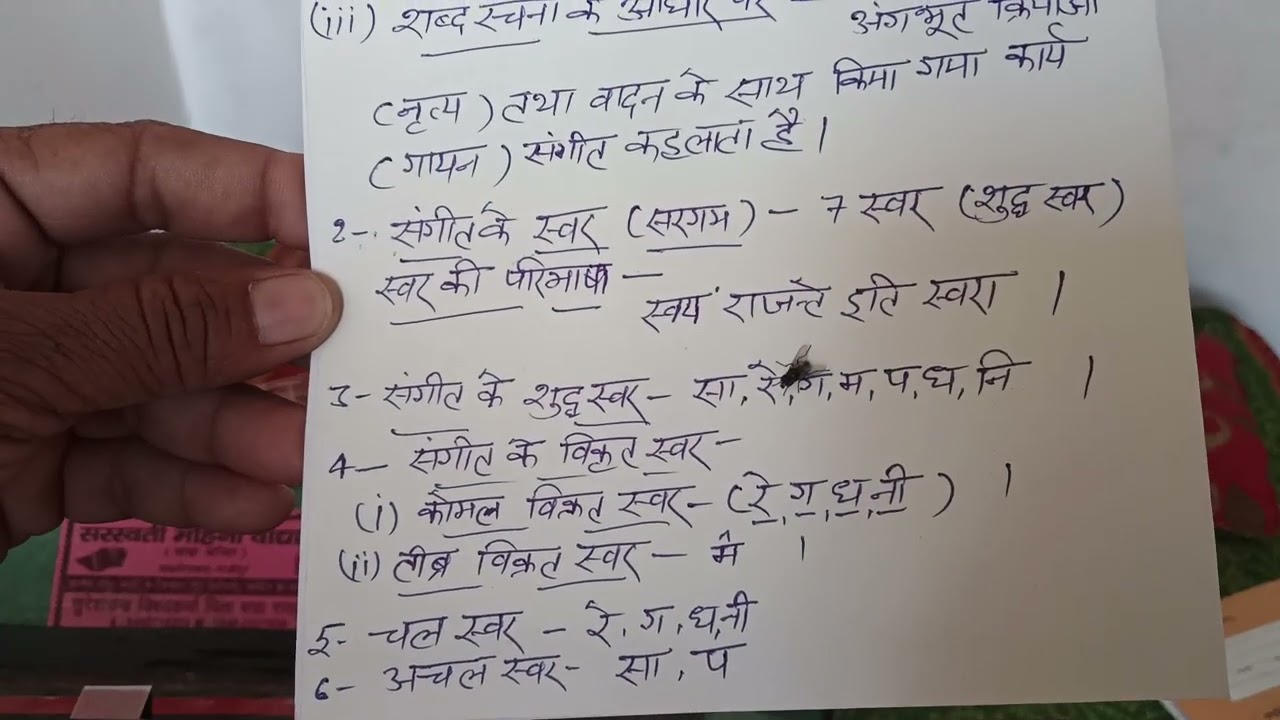 (iii) शब्द रचना के आधार पर
अंगभूत क्रियाओ
(नृत्य) तथा वादन के साथ किया गया कार्य
(गायन) संगीत कहलाता है।
2- संगीत के स्वर (सरगम) - 7 स्वर (शुद्ध स्वर)
स्वर की परिभाषा -
स्वयं राजन्ते इति स्वरा ।
3- संगीत के शुद्ध स्वर - सा, रे, ग, म, प, ध, नि ।
4- संगीत के विकृत स्वर -
(i) कोमल विकृत स्वर - (रे॒, ग॒, ध॒, नी॒) ।
(ii) तीव्र विकृत स्वर - मे ।
5- चल स्वर - रे, ग, ध, नी
6- अचल स्वर - सा, प
सरस्वती महिमा